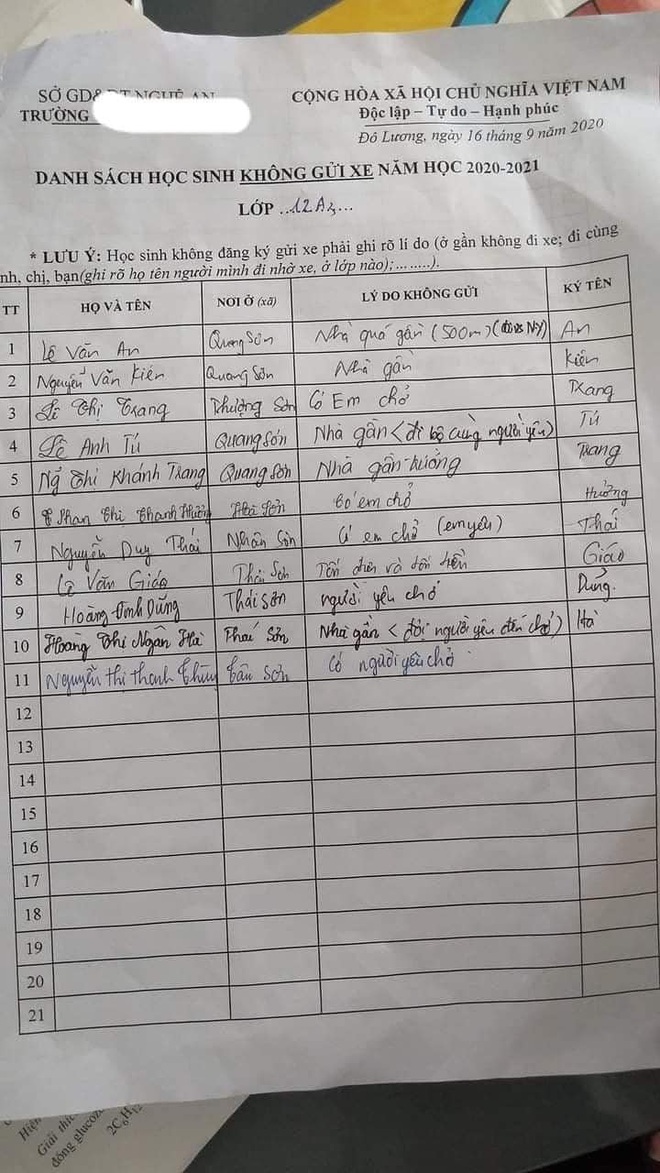 SỞ GD&ĐT NGHỆ AN
TRƯỜNG
CỘNG HÒA XÃ HỘI CHỦ NGHĨA VIỆT NAM
Độc lập – Tự do – Hạnh phúc
Đô Lương, ngày 16 tháng 9 năm 2020
DANH SÁCH HỌC SINH KHÔNG GỬI XE NĂM HỌC 2020-2021
LỚP ...12A2...
* LƯU Ý: Học sinh không đăng ký gửi xe phải ghi rõ lí do (ở gần không đi xe; đi cùng
nh, chị, bạn(ghi rõ họ tên người mình đi nhờ xe, ở lớp nào);........).
TT HỌ VÀ TÊN NƠI Ở (xã) LÝ DO KHÔNG GỬI KÝ TÊN
1 Lê Văn An Quang Sơn Nhà quá gần (500m) An
2 Nguyễn Văn Kiên Quang Sơn Nhà gần Kiên
3 Lê Thị Trang Thượng Sơn Có Em chở Trang
4 Lê Anh Tú Quang Sơn Nhà gần < đi bộ cùng người yêu) Tú
5 Ng̃ Thị Khánh Trang Quang Sơn Nhà gần trường Trang
6 Phan Thi Thanh Hường Hoà Sơn bố em chở Hường
7 Nguyễn Duy Thái Nhân Sơn Có em chở (em yêu) Thái
8 Lê Văn Giáo Thái Sơn Tốn điện và tốn tiền Giáo
9 Hoàng Đình Dũng Thái Sơn người yêu chở Dũng.
10 Hoàng Thị Ngân Hà Thái Sơn Nhà gần < đợi người yêu đến chở) Hà
11 Nguyễn thị thanh Thùy Tân Sơn Có người yêu chở
12
13
14
15
16
17
18
19
20
21
Giải thí
đồng glucoz